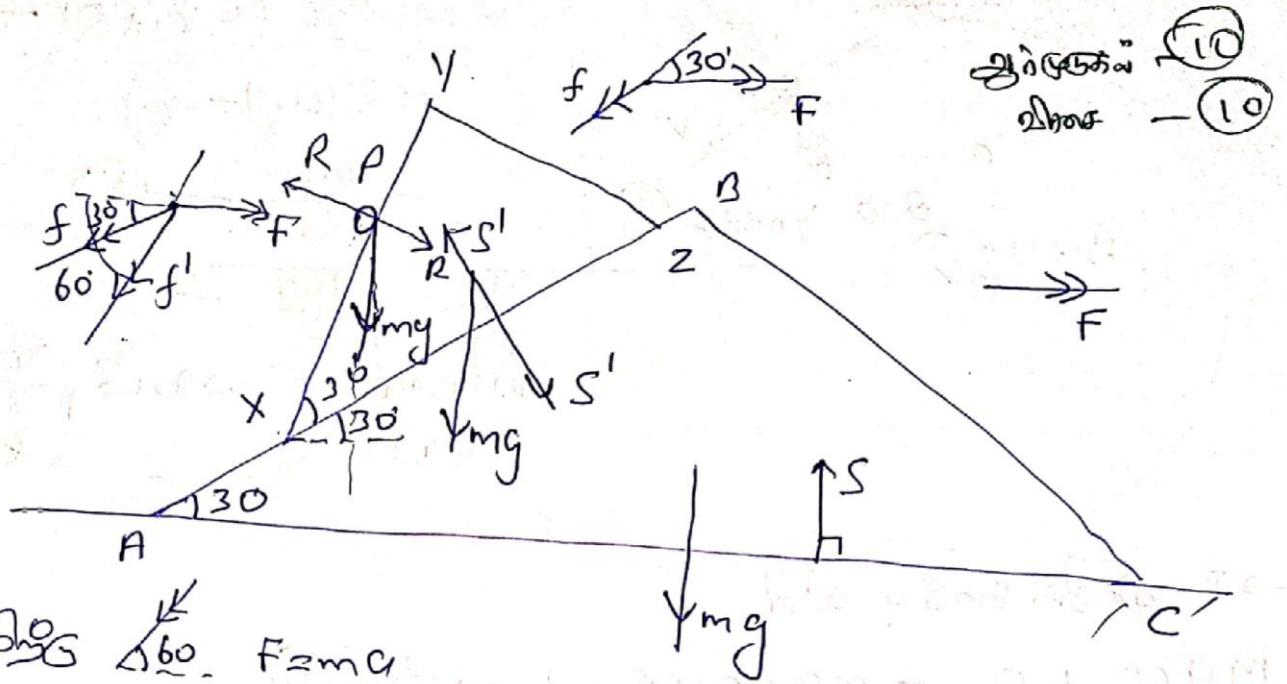 ஆர்முடுகல் - 10
விசை - 10
Y
f 30° F
R P
B
f 30° F
60° f'
R S'
Z
mg
F
X 30 30°
S'
mg
S
A 30
mg
C
60 F=ma